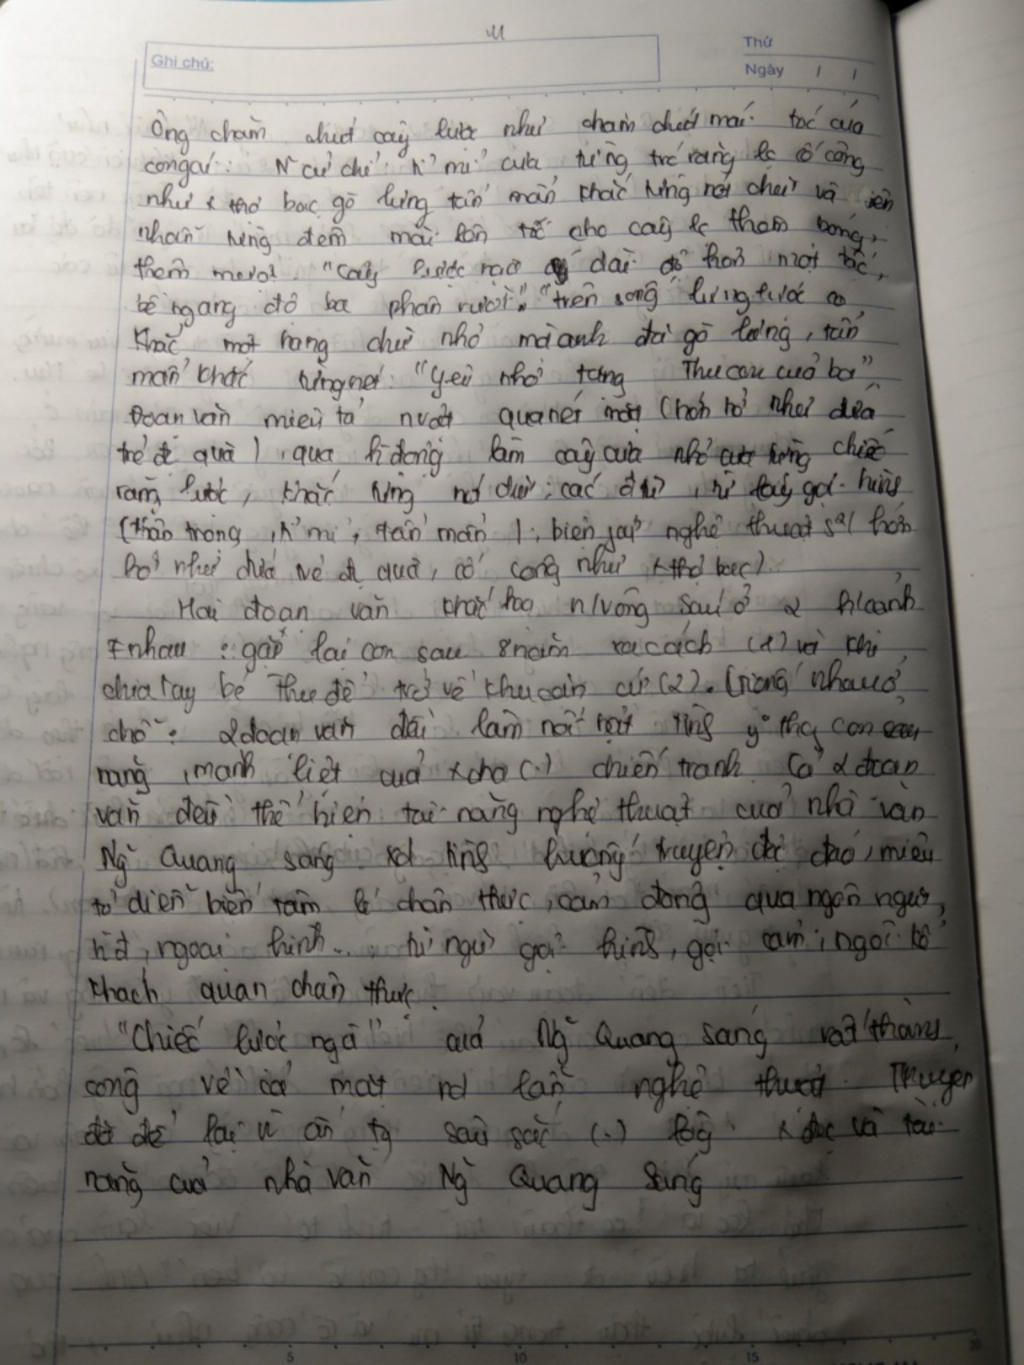 Ghi chú:
Thứ
Ngày / /
Ông chăm chút cây lược như chăm chút mái tóc của
con gái: N~ cử chỉ tỉ mỉ cưa từng răng lc cố công
như thợ bạc gò lưng tẩn mẩn khắc từng nét chữ và
nhẫn từng đêm mài lên tóc cho cây lc thêm bóng,
thêm mượt. "Cây lược ngà dài độ hơn một tấc,
bề ngang độ ba phân rưỡi". "trên sống lưng lược có
khắc một hàng chữ nhỏ mà anh đã gò lưng, tẩn
mẩn khắc từng nét: "Yêu nhớ tặng Thu con của ba"
Đoạn văn miêu tả qua nét mặt (hớn hở như đứa
trẻ đc quà), qua h.động làm cây cưa nhỏ cưa từng chiếc
răng lược, khắc từng nét chữ; các đtừ, từ láy gợi hình
(thận trọng, tỉ mỉ, tẩn mẩn); biện pháp nghệ thuật s² (hớn
hở như đứa trẻ đc quà, cố công như thợ bạc)
Hai đoạn văn khắc họa n/v ông Sáu ở 2 h/cảnh
≠ nhau: gặp lại con sau 8 năm xa cách (1) và khi
chia tay bé Thu để trở về khu căn cứ (2). Giống nhau ở
chỗ: 2 đoạn văn đều làm nổi bật tình y² thg con sâu
nặng, mãnh liệt của cha (.) chiến tranh. Cả 2 đoạn
văn đều thể hiện tài năng nghệ thuật của nhà văn
Ng~ Quang Sáng xd tình huống truyện độc đáo, miêu
tả diễn biến tâm lí chân thực, cảm động qua ngôn ngữ,
hđ, ngoại hình... từ ngữ gợi hình, gợi cảm; ngôi kể
khách quan chân thực.
"Chiếc lược ngà" của Ng~ Quang Sáng rất thành
công về cả mặt nd lẫn nghệ thuật. Truyện
đã để lại n² ấn tg sâu sắc (.) lòng đọc và tài
năng của nhà văn Ng~ Quang Sáng
5 10 15